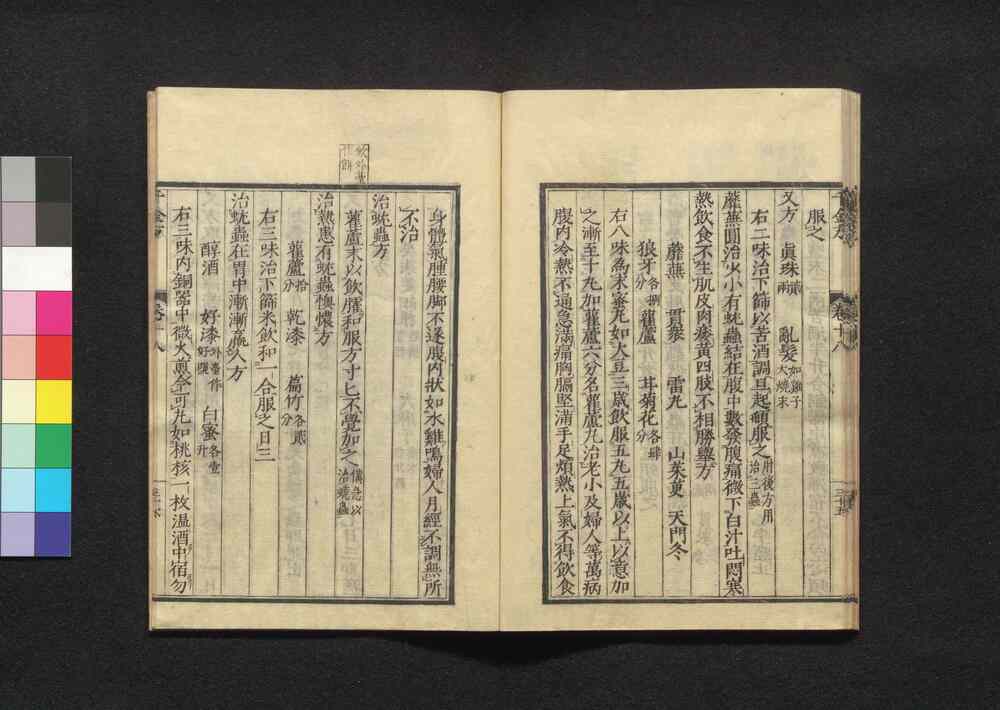 服之
又方
眞珠兩貳 亂髮如雞子大燒末
右二味治下篩以苦酒調旦起頓服之肘後方用治三蟲
蘼蕪圓治火小有蚘蟲結在腹中數發腹痛微下白汁吐悶寒
熱飲食不生肌皮肉痿黃四肢不相勝舉方
蘼蕪 貫衆 雷丸 山茱萸 天門冬
狼牙各捌分 雚蘆 甘菊花各肆分
右八味爲末蜜丸如大豆三歲飲服五丸五歲以上以意加
之漸至十丸加雚蘆六分名雚蘆丸治老小及婦人等萬病
腹內冷熱不通急滿痛胸膈堅滿手足煩熱上氣不得飲食
身體氣腫腰脚不遂腹內狀如水雞鳴婦人月經不調無所
不治
治蚘蟲方
雚蘆末以飲臛和服方寸匕不覺加之備急以治蟯蟲
治熱患有蚘蟲懊憹方
雚蘆拾分 乾漆 萹竹各貳分
右三味治下篩米飲和一合服之日三
治蚘蟲在胃中漸漸羸人方
醇酒 好漆 白蜜各壹升
右三味內銅器中微火煎令可丸如桃核一枚溫酒中宿勿
千金方
卷十八